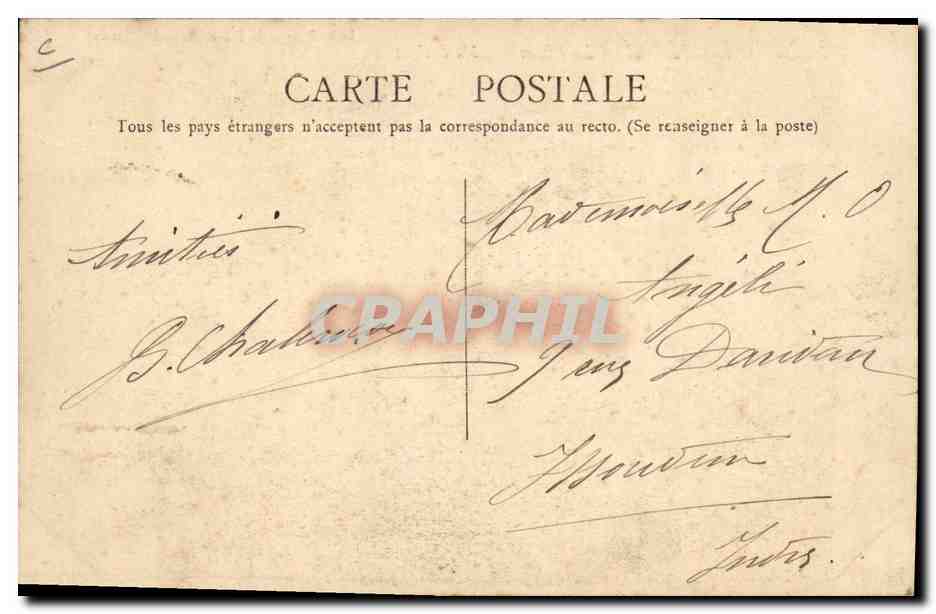 C
CARTE POSTALE
Tous les pays étrangers n'acceptent pas la correspondance au recto. (Se renseigner à la poste)
Amitiés
G. 
Mademoiselle M. O
Angéli
9 rue
Issoudun
Indre.
CRAPHIL